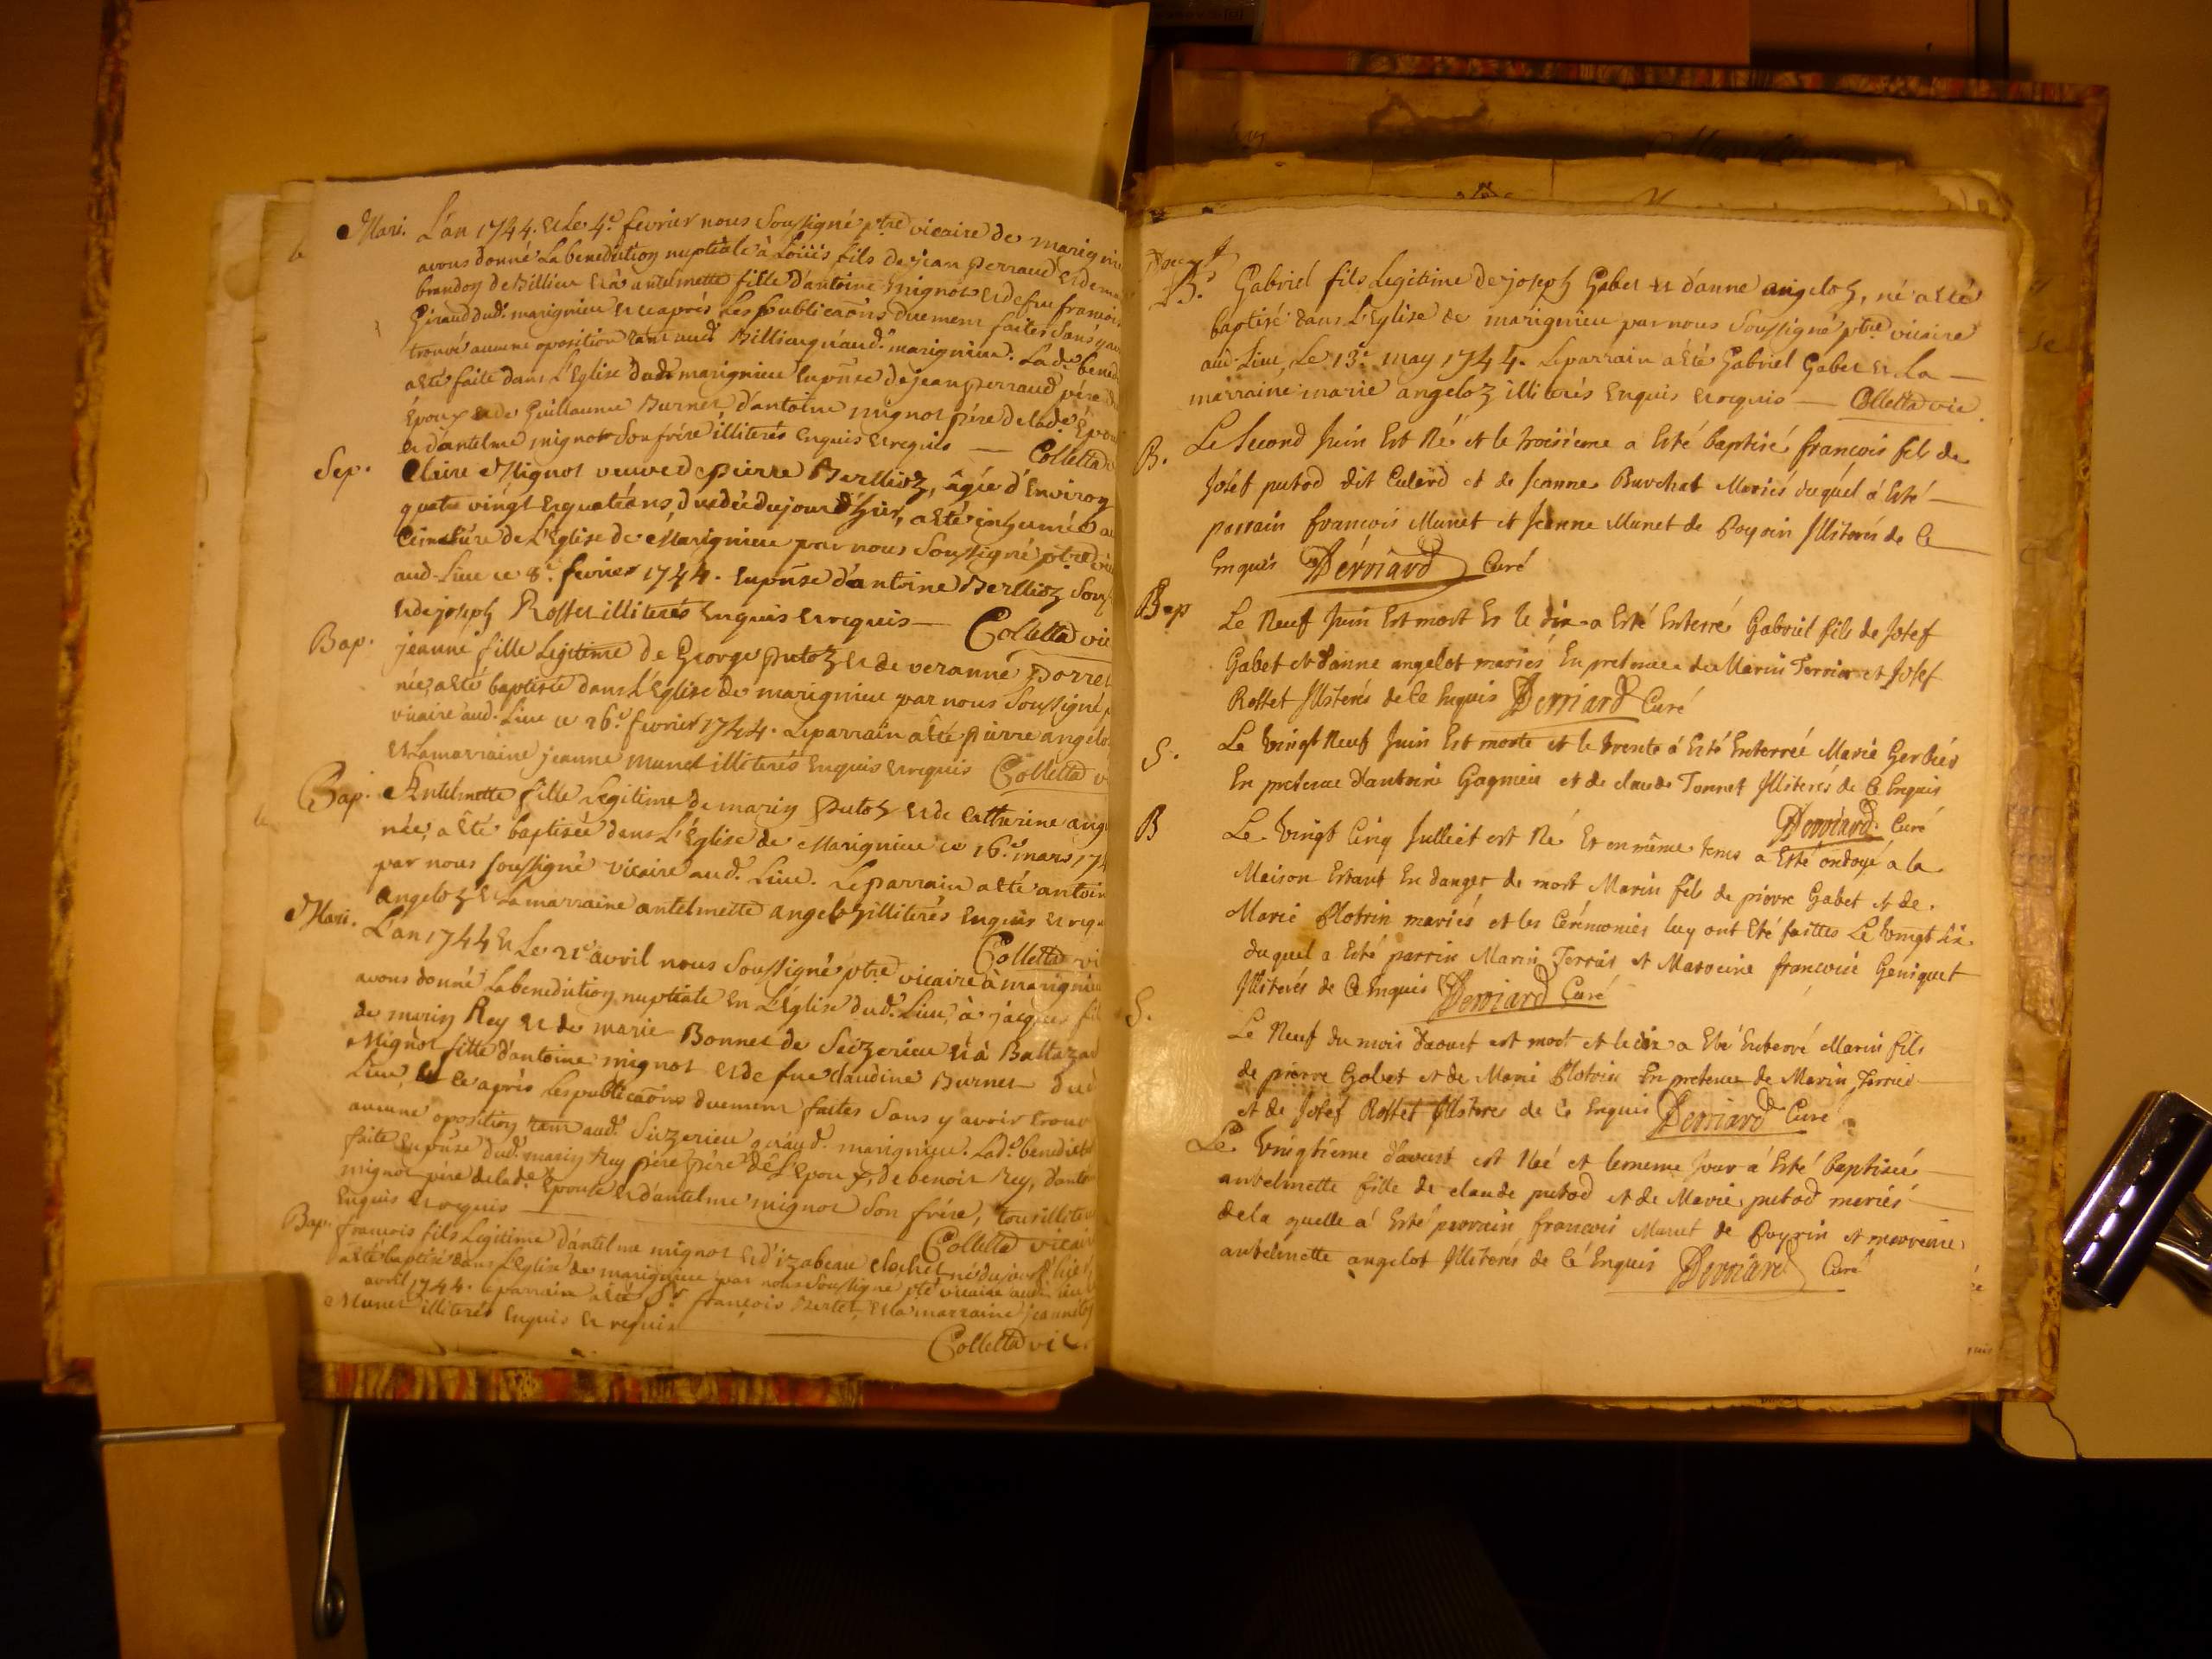 Mari. L'an 1744. et Le 4.e fevrier nous Soussigné ptre vicaire de marigni
avons donné La benediction nuptiale à Loüis fils de jean perraud et de
brandon de Billieu et à antelmette fille d'antoine mignot et de fue francoi
Giraud dud.t marignieu et ce après Les publicaons duement faites Sans y
trouvé aucune oposition tant aud.t Billieu qu'aud.t marignieu. Lad.e bened
a été faite dans L'Eglise dud.t marignieu En pñse de jean perraud père
Époux et de Guillaume Burnet d'antoine mignot père de lad.e Épou
et d'antelme mignot Son frére illiterés Enquis et requis — Colletta
Sep. Claire Mignot veuve de pierre Berllioz, âgée d'Environ
quatre vingt et quatre ans, dudit du jour d'hier, a été inhumée a
Cimetiére de L'Eglise de Marignieu par nous Soussigné ptre vi
aud. Lieu ce 8.e fevrier 1744. En pñse d'antoine Berllioz Son
et de joseph Rosset illiterés Enquis et requis — Colletta vic
Bap. jeanne fille Legitime de George putoz et de veranne porret
née, a été baptisée dans L'Eglise de marignieu par nous Soussigné p
vicaire aud. Lieu ce 26.e fevrier 1744. Le parrain a été pierre angelo
et La marraine jeanne munet illiterés Enquis et requis Colletta v
Bap. Antelmette fille Legitime de marin putoz et de Catherine ang
née, a été baptisée dans L'Eglise de Marignieu ce 16.e mars 174
par nous soussigné vicaire aud.t Lieu. Le parrain a été antoin
angeloz et La marraine antelmette angeloz illiterés Enquis et requ
Colletta vi
Mari. L'an 1744 et Le 21.e avril nous Soussigné ptre vicaire à marignieu
avons donné La benediction nuptiale En L'Eglise dud.t Lieu, à jacques fil
de marin Rey et de marie Bonnet de Seizerieu et à Baltazar
Mignot fille d'antoine mignot et de fue Claudine Burnet dud
Lieu, et ce après Les publicaons duement faites Sans y avoir trouv
aucune oposition tant aud.t Sizerieu qu'aud.t marignieu. Lad.e benedict
faite En pñse dud.t marin Rey père père de L'Époux, de benoit Rey, d'anton
mignot père de lad.e Epouse et d'antelme mignot Son frére, tous illiter
Enquis et requis — Colletta vicair
Bap. francois fils Legitime d'antelme mignot et d'izabeau clochet né du jour d'hier
a été baptisé dans L'Eglise de marignieu par nous Soussigné ptre vicaire aud. lieu
avril 1744. Le parrain a été Sr. françois Bertet, et La marraine jeanne
Munet illiterés Enquis et requis
Colletta vic.
B. Gabriel fils Legitime de joseph Gabet et d'anne angeloz, né a été
baptisé dans L'Eglise de marignieu par nous Soussigné ptre vicaire
aud. Lieu, Le 13.e may 1744. Le parrain a été Gabriel Gabet et La —
marraine marie angeloz illiterés Enquis et requis — Colletta vic
B. Le Second Juin Est Né et le troisieme a Esté baptisé françois fils de
Josef putod dit Culard et de Jeanne Burchat Mariés duquel a Esté —
parrain françois Munet et Jeanne Munet de Poysin Illiterés de Ce
Enquis Derriard Curé
Bap Le Neuf Juin Est mort Et le dix a Esté Enterré Gabriel fils de Josef
Gabet et d'anne angelot mariés En presence de Marin Terrier et Josef
Rosset Illiterés de Ce Enquis Derriard Curé
S. Le Vingt Neuf Juin Est morte et le trente a Esté Enterreé Marie Gerbiés
En presence d'antoine Gagnieu et de claude Tonnet Illiterés de Ce Enquis
Derriard Curé
B Le Vingt Cinq Julliet est Né Et en même tems a Esté ondoyé a la
Maison Estant En danger de mort Marin fils de pierre Gabet et de
Marie Plotrin mariés et les Cérémonies luy ont Eté faittes Le Vingt Six
duquel a Esté parrin Marin Terrier et Marreine francoise Geniquet
Illiterés de Ce Enquis Derriard Curé
S. Le Neuf du mois d'aoust est mort et le dix a Eté Enterré Marin fils
de pierre Gabet et de Marie Plotrin En presence de Marin Terrier
et de Josef Rosset Illiteres de Ce Enquis Derriard Curé
Le Vingtieme d'aoust est Neé et le meme Jour a Esté baptiseé
antelmette fille de claude putod et de Marie putod mariés
de la quelle a Esté parrain francois Munet de Poyrin et marreine
antelmette angelot Illiterés de Ce Enquis Derriard Curé